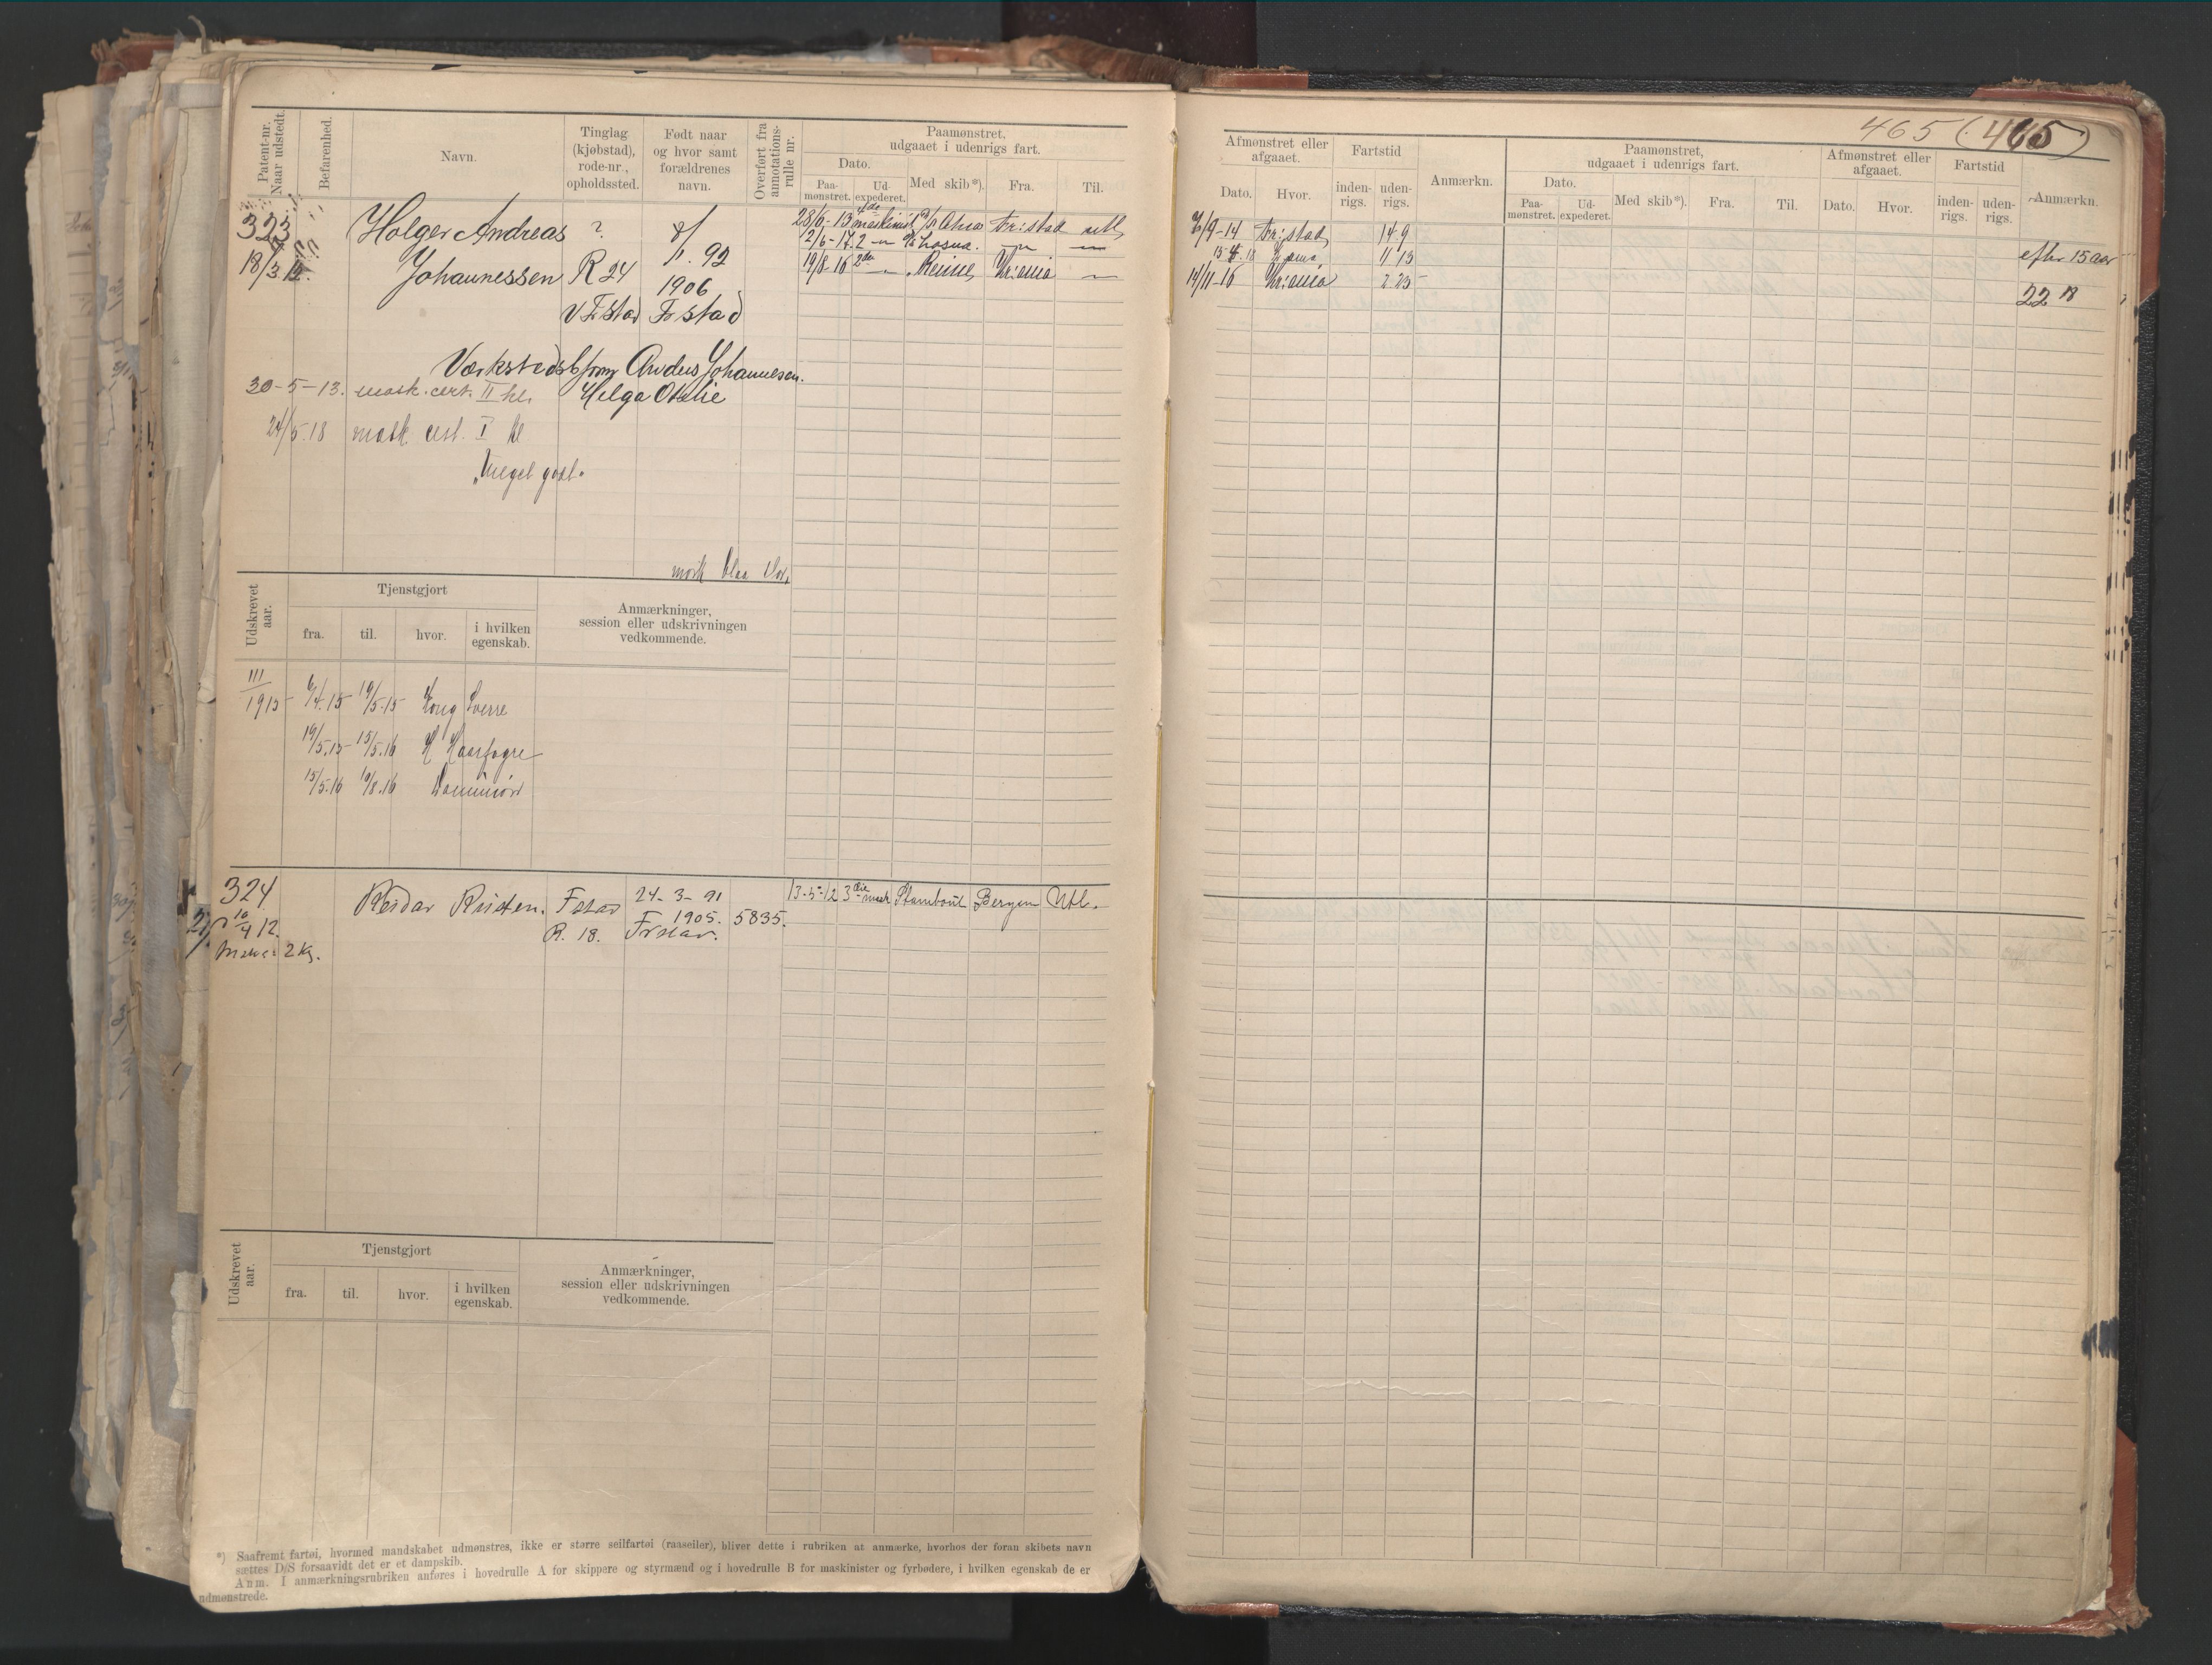 Patent-nr. Naar udstedt.
Befarenhed.
Navn.
Tinglag (kjøbstad), rode-nr., opholdssted.
Født naar og hvor samt forældrenes navn.
Overført fra annotations-rulle nr.
Paamønstret, udgaaet i udenrigs fart.
Dato.
Paa-mønstret.
Ud-expederet.
Med skib*).
Fra.
Til.
323
18/3 12.
Holger Andreas
Johannessen
?
R 24
V Fstad
8/1. 92
1906
Fstad
28/6-13 4de maskinist
Fr:stad
2/6-17. 2
19/8-16 2den
Kr:ania
Værkstedsbform Anders Johannesen.
30-5-13. mask. cert. II kl.
Helga Otelie
24/5.18 mask cert. I kl
"Meget godt"
mørk blaa
Udskrevet aar.
Tjenstgjort
fra.
til.
hvor.
i hvilken egenskab.
Anmærkninger, session eller udskrivningen vedkommende.
III
1915 6/4.15 19/5.15 Kong Sverre
19/5.15 15/5.16 H Haarfagre
15/5.16 19/8.16
324
10/4 12.
2 Kr.
Reidar
Fstad
R. 18.
24-3-91
1905.
Frstad.
5835.
13-5-12 3die mask Stamboul Bergen Utl.
Udskrevet aar.
Tjenstgjort
fra.
til.
hvor.
i hvilken egenskab.
Anmærkninger, session eller udskrivningen vedkommende.
*) Saafremt fartøi, hvormed mandskabet udmønstres, ikke er større seilfartøi (raaseiler), bliver dette i rubriken at anmærke, hvorhos der foran skibets navn
sættes D/S forsaavidt det er et dampskib.
Anm. I anmærkningsrubriken anføres i hovedrulle A for skippere og styrmænd og i hovedrulle B for maskinister og fyrbødere, i hvilken egenskab de er
udmønstrede.
465 (465)
Afmønstret eller afgaaet.
Dato.
Hvor.
Fartstid
inden-rigs.
uden-rigs.
Anmærkn.
Paamønstret, udgaaet i udenrigs fart.
Dato.
Paa-mønstret.
Ud-expederet.
Med skib*).
Fra.
Til.
Afmønstret eller afgaaet.
Dato.
Hvor.
Fartstid
inden-rigs.
uden-rigs.
Anmærkn.
Fr:stad 14.9
11 13
14/11-16 Kr:ania 2.25
efter 15 aar
22